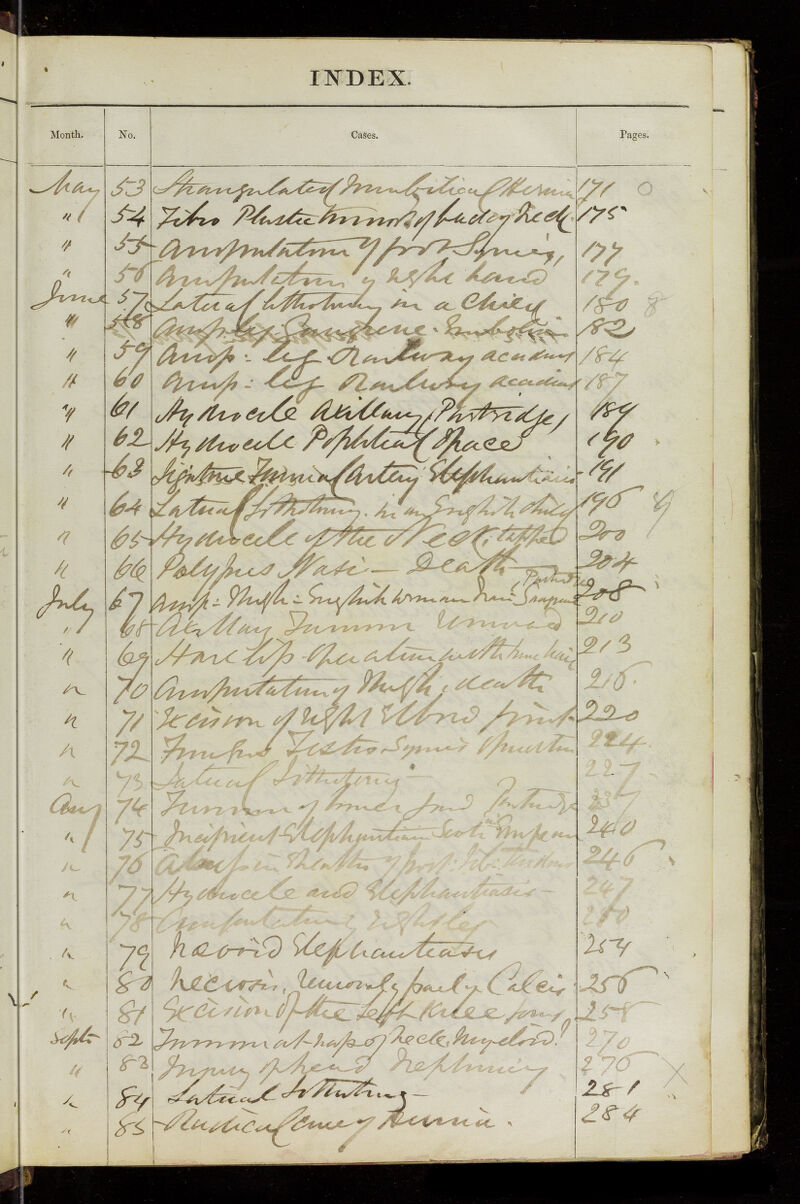 INDEX.
Month. No. Cases. Pages.
May 53 Strangulated Umbilical Hernia 171 0
" 54 Fibro Plastic tumor of back of neck 175
" 55 Amputation of foot Symes, 177
" 56 Amputation of right hand 179.
June 57 Lateral lithotomy in a child 180 8
" 58 Amp: leg Gangrene. Embolism 182
" 59 Amp: leg Railway accident 184
" 60 Amp: leg Railway accident 187
" 61 Hydrocele Axillary (Partridge) 189
" 62 Hydrocele Popliteal Space 190
" 63 Ligature Femoral Artery Elephantiasis 191
" 64 Lateral Lithotomy. in an English child 196 9
" 65 Hydrocele of the Neck, tapped 200
" 66 Polypus Nasi - Death 204
July 67 Amp: Thigh: English woman (Partridge) 208
" 68 Axillary Tumour removed 210
" 69 Hare lip operation with 213
" 70 Amputation of Thigh, death 216.
" 71 Excision of right Elbow joint 220
" 72 Fungus Testis Symes operation 224.
" 73 Lateral Lithotomy - 227
Aug 74 Tumour of lower jaw Partridge 237
" 75 Incipient Elephantiasis Scoti in European 240
" 76 Abscess in Sheaths of post: Tib: 246
" 77 Hydrocele and Elephantiasis - 247
" 78 Amputation of right leg 250
" 79 Naevoid Elephantiasis 254
" 80 Necrosis, removal of part of Calcis 256
" 81 Excision of the left Knee joint, 258
Septr 82 Tumour at nape of neck. Myeloid? 270
" 83 Injury of head Trephining 276 X
" 84 Lateral Lithotomy - 281
" 85 Radical cure of Hernia. 284